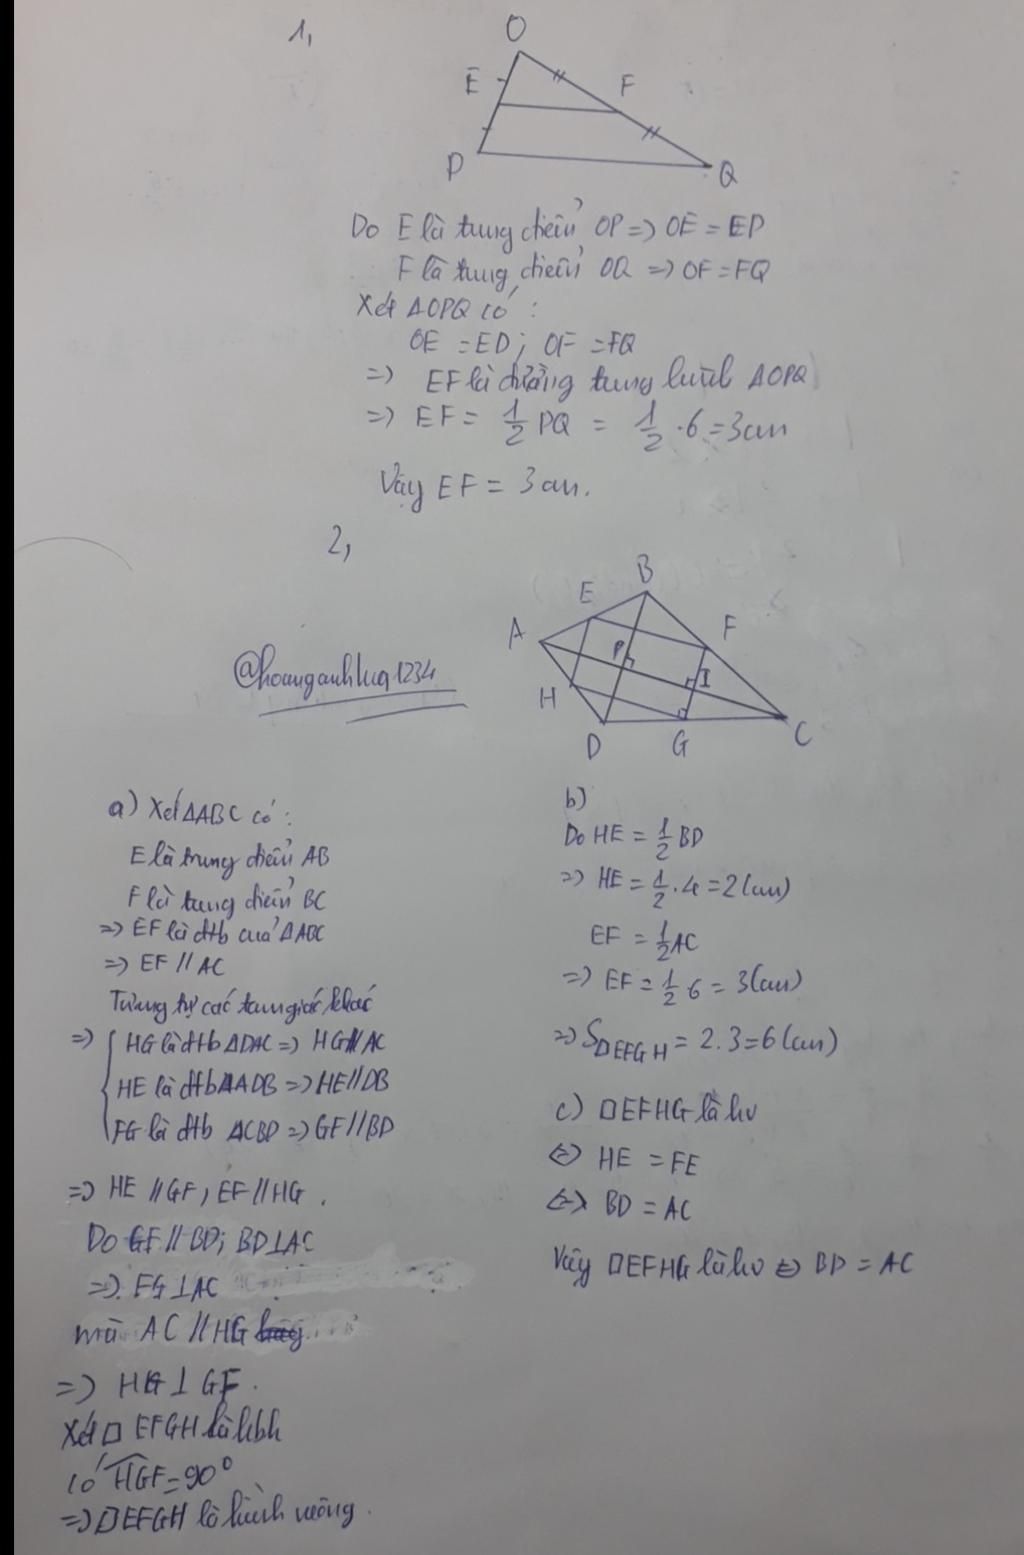 1,
O
E
F
P
Q
Do E là trung điểm OP => OE = EP
F là trung điểm OQ => OF = FQ
Xét ΔOPQ có:
OE = ED; OF = FQ
=> EF là đường trung bình ΔOPQ
=> EF = 1/2 PQ = 1/2 . 6 = 3cm
Vậy EF = 3cm.
2,
B
E
A
F
P
I
H
D
G
C
@hoanganhluq1234
a) Xét ΔABC có:
E là trung điểm AB
F là trung điểm BC
=> EF là đtb của ΔABC
=> EF // AC
Tương tự các tam giác khác
=> { HG là đtb ΔDAC => HG // AC
HE là đtb ΔADB => HE // DB
FG là đtb ΔCBD => GF // BD
=> HE // GF, EF // HG.
Do GF // BD; BD ⊥ AC
=> FG ⊥ AC
mà AC // HG
=> HG ⊥ GF.
Xét □ EFGH là hbh
có HGF = 90°
=> □EFGH là hình vuông.
b)
Do HE = 1/2 BD
=> HE = 1/2 . 4 = 2 (cm)
EF = 1/2 AC
=> EF = 1/2 6 = 3 (cm)
=> S DEFGH = 2.3 = 6 (cm)
c) □EFHG là hv
<=> HE = FE
<=> BD = AC
Vậy □EFHG là hv <=> BD = AC